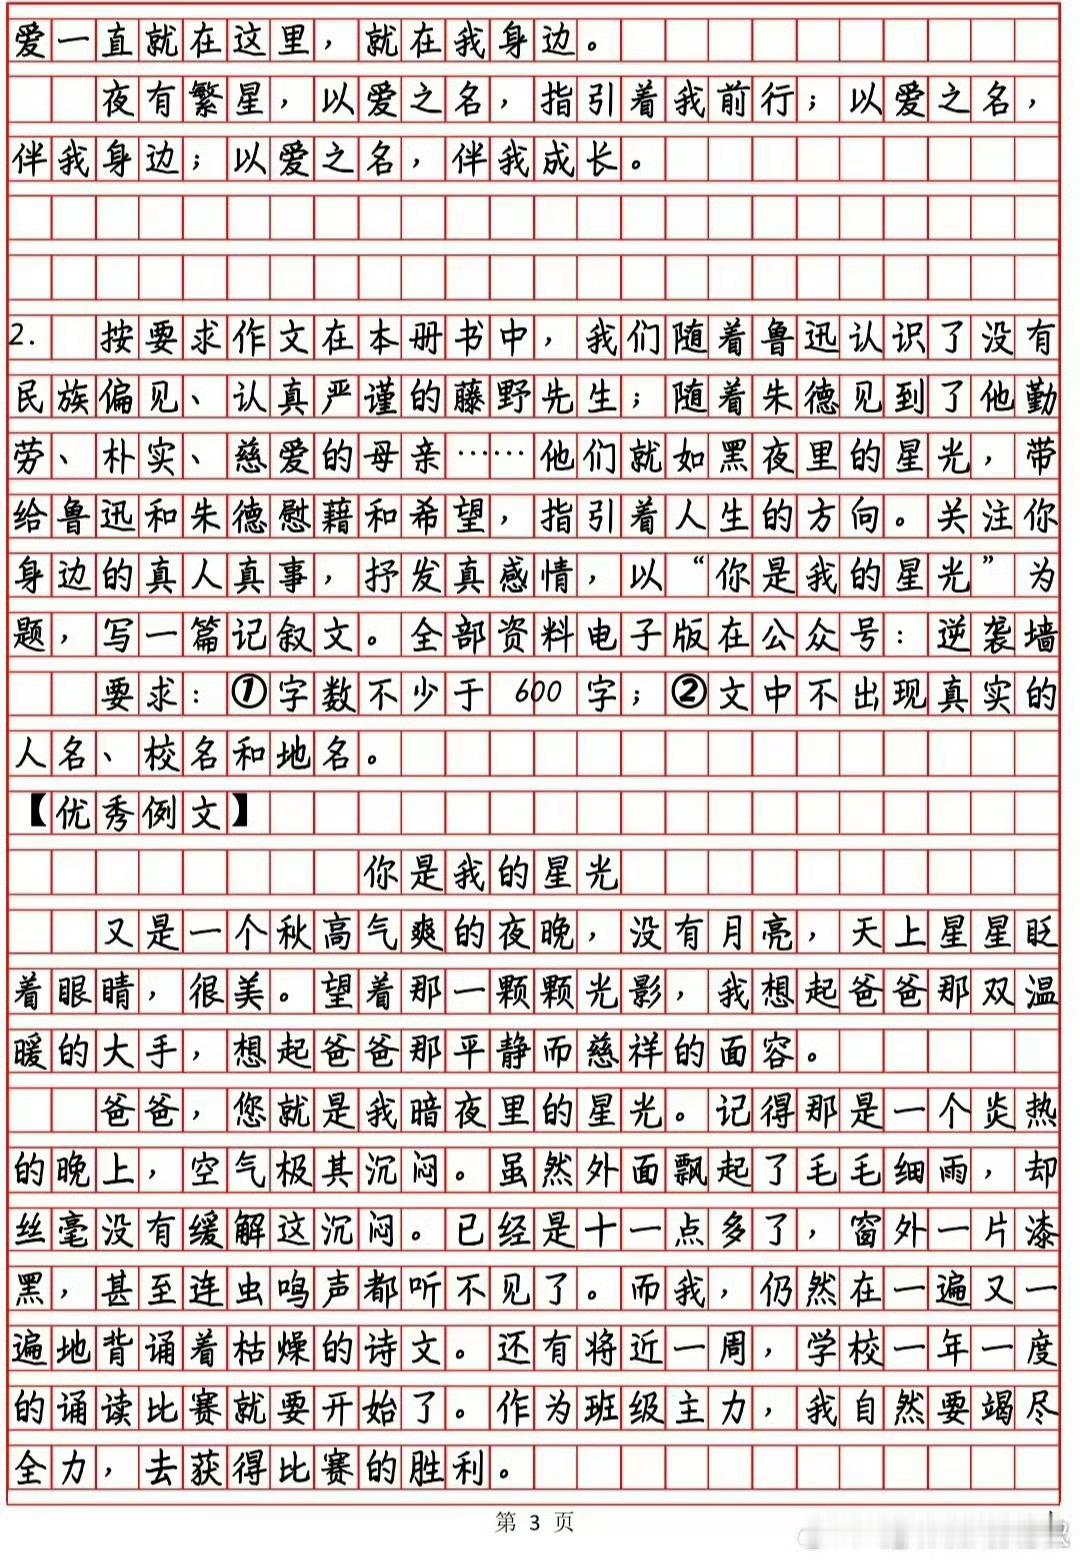 爱一直就在这里，就在我身边。
夜有繁星，以爱之名，指引着我前行；以爱之名，
伴我身边；以爱之名，伴我成长。
2. 按要求作文在本册书中，我们随着鲁迅认识了没有
民族偏见、认真严谨的藤野先生；随着朱德见到了他勤
劳、朴实、慈爱的母亲……他们就如黑夜里的星光，带
给鲁迅和朱德慰藉和希望，指引着人生的方向。关注你
身边的真人真事，抒发真感情，以“你是我的星光”为
题，写一篇记叙文。全部资料电子版在公众号：逆袭墙
要求：①字数不少于 600 字；②文中不出现真实的
人名、校名和地名。
【优秀例文】
你是我的星光
又是一个秋高气爽的夜晚，没有月亮，天上星星眨
着眼睛，很美。望着那一颗颗光影，我想起爸爸那双温
暖的大手，想起爸爸那平静而慈祥的面容。
爸爸，您就是我暗夜里的星光。记得那是一个炎热
的晚上，空气极其沉闷。虽然外面飘起了毛毛细雨，却
丝毫没有缓解这沉闷。已经是十一点多了，窗外一片漆
黑，甚至连虫鸣声都听不见了。而我，仍然在一遍又一
遍地背诵着枯燥的诗文。还有将近一周，学校一年一度
的诵读比赛就要开始了。作为班级主力，我自然要竭尽
全力，去获得比赛的胜利。
第 3 页